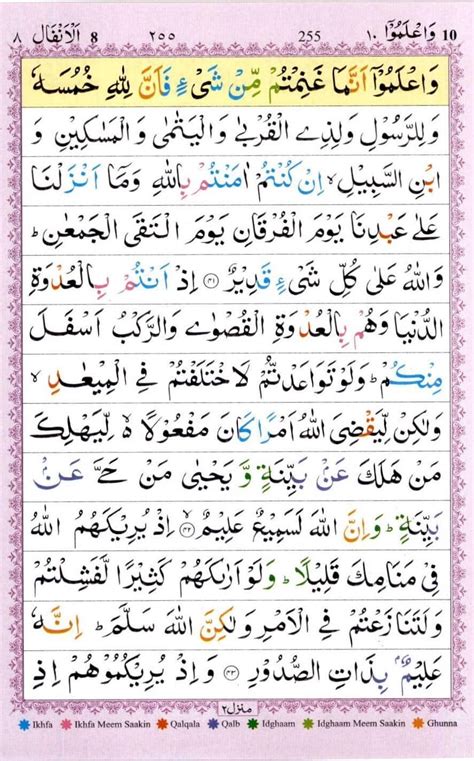 10 وَاعْلَمُوْٓا ١٠ 255 ٢٥٥ 8 اَلْاَنْفَال ٨
وَاعْلَمُوْٓا اَنَّمَا غَنِمْتُمْ مِّنْ شَیْءٍ فَاَنَّ لِلّٰهِ خُمُسَهٗ
وَلِلرَّسُوْلِ وَلِذِی الْقُرْبٰی وَالْیَتٰمٰی وَالْمَسٰكِیْنِ وَ
ابْنِ السَّبِیْلِ ۙ اِنْ كُنْتُمْ اٰمَنْتُمْ بِاللّٰهِ وَمَاۤ اَنْزَلْنَا
عَلٰی عَبْدِنَا یَوْمَ الْفُرْقَانِ یَوْمَ الْتَقَی الْجَمْعٰنِ ؕ
وَاللّٰهُ عَلٰی كُلِّ شَیْءٍ قَدِیْرٌ ﴿۴۱﴾ اِذْ اَنْتُمْ بِالْعُدْوَةِ
الدُّنْیَا وَهُمْ بِالْعُدْوَةِ الْقُصْوٰی وَالرَّكْبُ اَسْفَلَ
مِنْكُمْ ؕ وَلَوْ تَوَاعَدْتُّمْ لَاخْتَلَفْتُمْ فِی الْمِیْعٰدِ ۙ
وَلٰكِنْ لِّیَقْضِیَ اللّٰهُ اَمْرًا كَانَ مَفْعُوْلًا ۙ لِّیَهْلِكَ
مَنْ هَلَكَ عَنْۢ بَیِّنَةٍ وَّ یَحْیٰی مَنْ حَیَّ عَنْۢ
بَیِّنَةٍ ؕ وَاِنَّ اللّٰهَ لَسَمِیْعٌ عَلِیْمٌ ﴿۴۲﴾ اِذْ یُرِیْكَهُمُ اللّٰهُ
فِیْ مَنَامِكَ قَلِیْلًا ؕ وَلَوْ اَرٰىكَهُمْ كَثِیْرًا لَّفَشِلْتُمْ
وَلَتَنَازَعْتُمْ فِی الْاَمْرِ وَلٰكِنَّ اللّٰهَ سَلَّمَ ؕ اِنَّهٗ
عَلِیْمٌۢ بِذَاتِ الصُّدُوْرِ ﴿۴۳﴾ وَاِذْ یُرِیْكُمُوْهُمْ اِذِ
منزل۲
Ikhfa Ikhfa Meem Saakin Qalqala Qalb Idghaam Idghaam Meem Saakin Ghunna